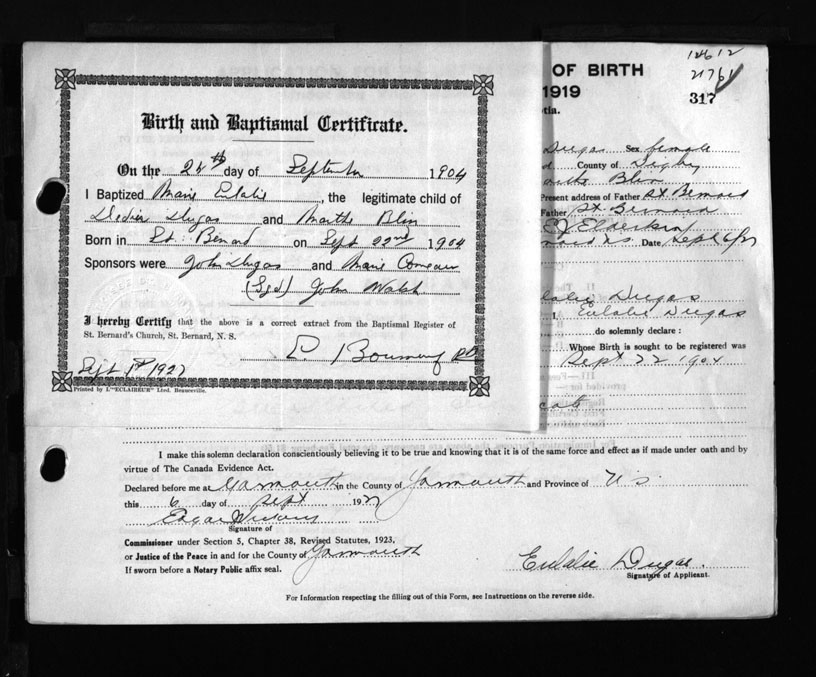 Birth and Baptismal Certificate.
On the 24th day of September 1904
I Baptized Marie Eulalie, the legitimate child of
Dugas and Marthe Blin
Born in St. Bernard on Sept 22nd 1904
Sponsors were John Dugas and Marie Comeau
(Sgd) John Walsh
I hereby Certify that the above is a correct extract from the Baptismal Register of
St. Bernard's Church, St. Bernard, N. S.
Sept 1st 1927
Printed by L'"ECLAIREUR" Ltd. Beauceville.
OF BIRTH
1919
317
Dugas Sex female
County of Digby
Blin
Present address of Father St Bernard
Father St. Bernard
Date Sept 6/27
Eulalie Dugas
I, Eulalie Dugas
do solemnly declare :
Whose Birth is sought to be registered was
Sept 22 1904
I make this solemn declaration conscientiously believing it to be true and knowing that it is of the same force and effect as if made under oath and by
virtue of The Canada Evidence Act.
Declared before me at Yarmouth in the County of Yarmouth and Province of N S
this 6 day of Sept 1927
Signature of
Commissioner under Section 5, Chapter 38, Revised Statutes, 1923,
or Justice of the Peace in and for the County of Yarmouth
If sworn before a Notary Public affix seal.
Eulalie Dugas.
Signature of Applicant.
For Information respecting the filling out of this Form, see Instructions on the reverse side.